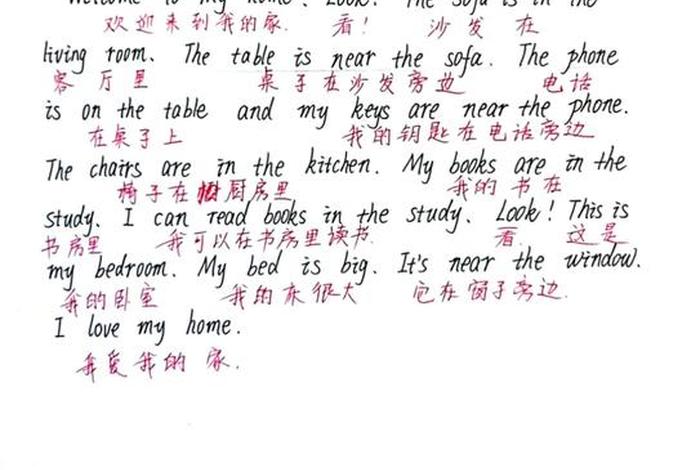 Welcome to my home! Look! The sofa is in the
欢迎来到我的家. 看! 沙发在
living room. The table is near the sofa. The phone
客厅里 桌子在沙发旁边 电话
is on the table and my keys are near the phone.
在桌子上 我的钥匙在电话旁边
The chairs are in the kitchen. My books are in the
椅子在厨房里 我的书在
study. I can read books in the study. Look! This is
书房里 我可以在书房里读书. 看. 这是
my bedroom. My bed is big. It's near the window.
我的卧室 我的床很大 它在窗子旁边.
I love my home.
我爱我的家.